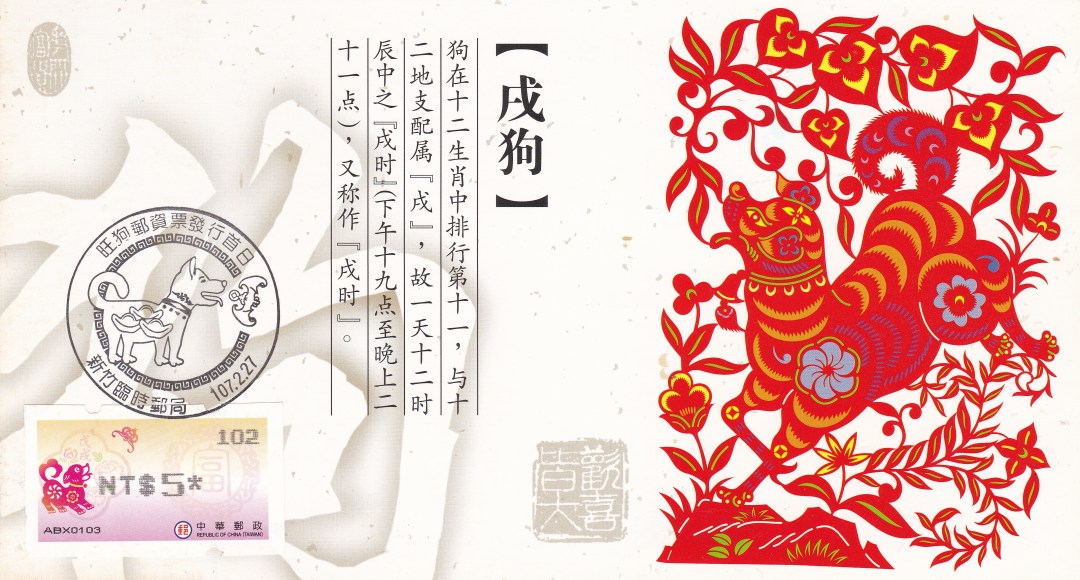 【戌狗】
狗在十二生肖中排行第十一，与十
二地支配属『戌』，故一天十二时
辰中之『戌时』(下午十九点至晚上二
十一点)，又称作『戌时』。
旺狗郵資票發行首日
新竹臨時郵局
107.2.27
102
NT$5*
ABX0103
郵
中華郵政
REPUBLIC OF CHINA (TAIWAN)
富
歡喜
吉大